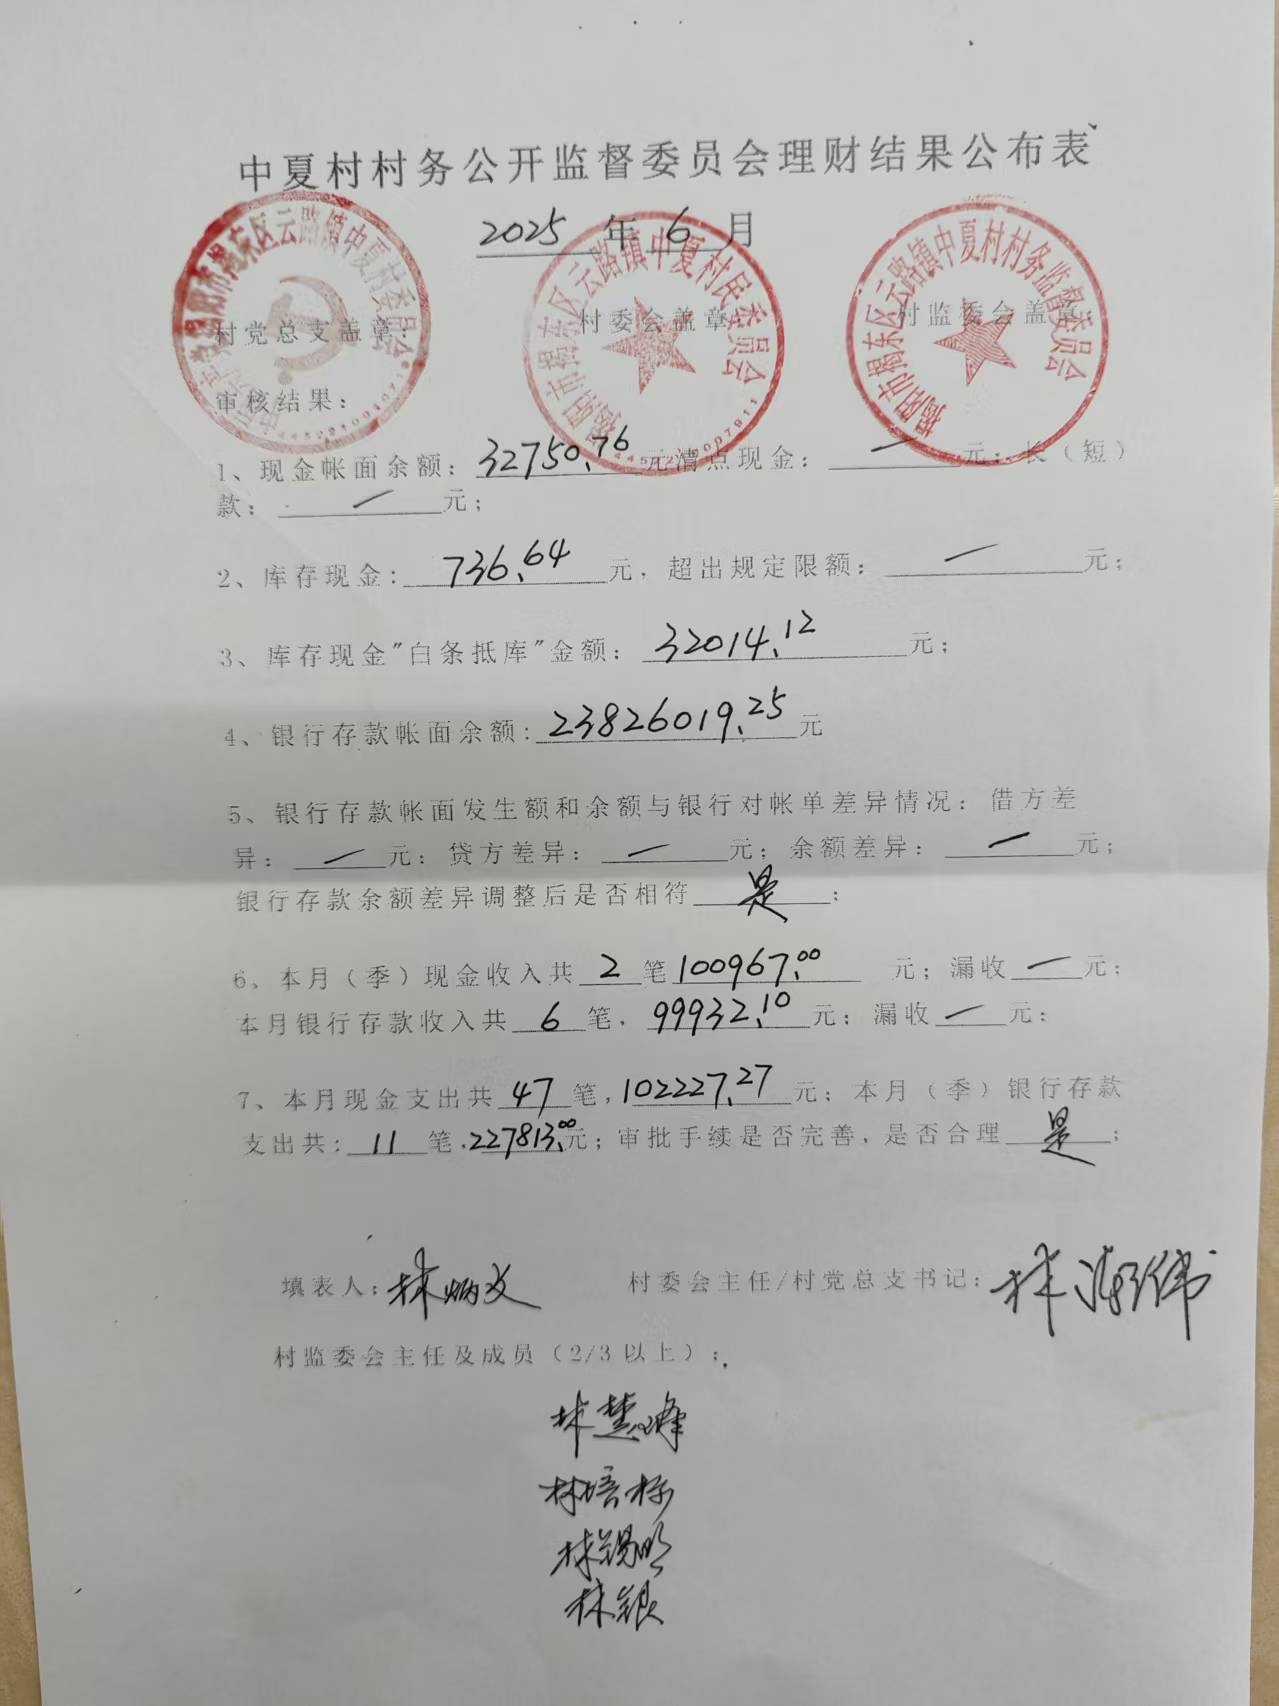 中夏村村务公开监督委员会理财结果公布表
2025年6月
村党总支盖章: 村委会盖章 村监委会盖章
云路镇中夏村委员会
揭阳市揭东区云路镇中夏村民委员会
揭阳市揭东区云路镇中夏村村务监督委员会
审核结果:
1、现金帐面余额: 32750.76元清点现金: 一元; 长(短)
款: 一元;
2、库存现金: 736.64元, 超出规定限额: 一元;
3、库存现金"白条抵库"金额: 32014.12元;
4、银行存款帐面余额: 23826019.25元
5、银行存款帐面发生额和余额与银行对帐单差异情况: 借方差
异: 一元: 贷方差异: 一元; 余额差异: 一元;
银行存款余额差异调整后是否相符 是;
6、本月(季)现金收入共 2 笔 100967.00 元; 漏收 一元;
本月银行存款收入共 6 笔, 99932.10元; 漏收 一元:
7、本月现金支出共 47 笔, 102227.27元; 本月(季)银行存款
支出共: 11 笔, 227813.00元; 审批手续是否完善, 是否合理 是;
填表人: 林炳文 村委会主任/村党总支书记: 林
村监委会主任及成员(2/3以上):
林慧峰
林培标
林锡明
林银